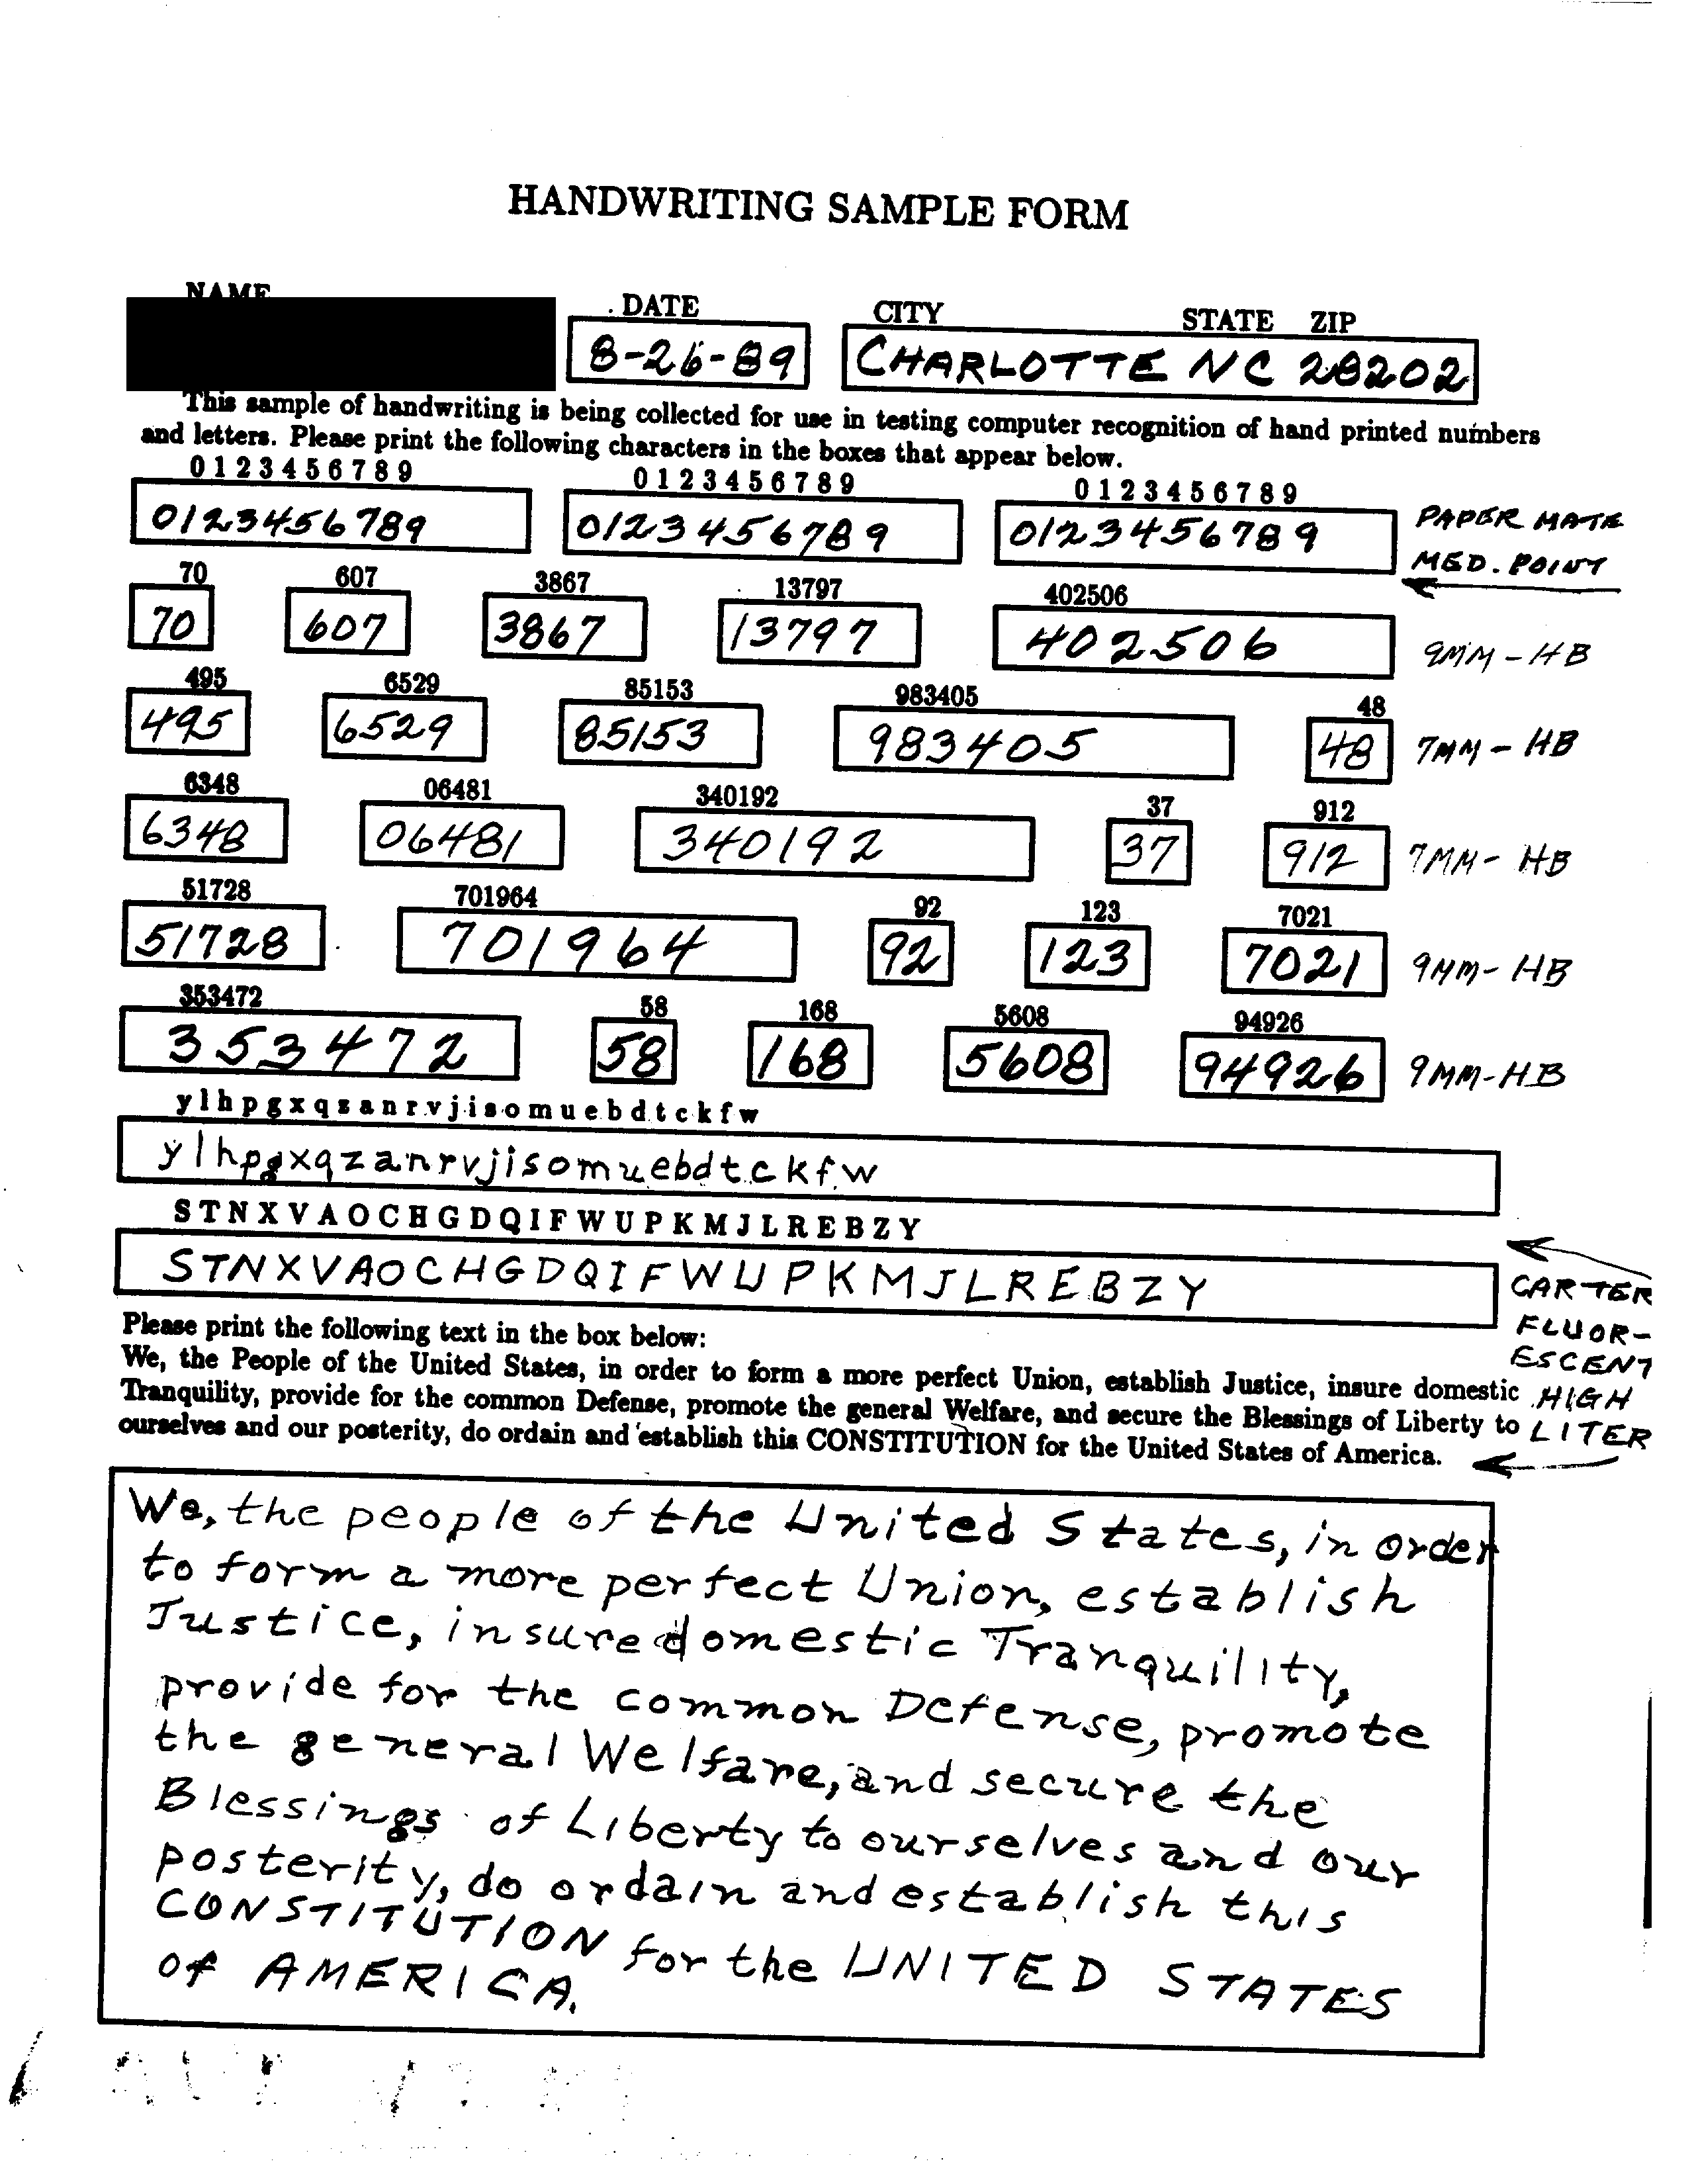 HANDWRITING SAMPLE FORM
NAME DATE CITY STATE ZIP
8-26-89 CHARLOTTE NC 28202
This sample of handwriting is being collected for use in testing computer recognition of hand printed numbers
and letters. Please print the following characters in the boxes that appear below.
0 1 2 3 4 5 6 7 8 9 0 1 2 3 4 5 6 7 8 9 0 1 2 3 4 5 6 7 8 9
0123456789 0123456789 0123456789 PAPER MATE
MED. POINT
70 607 3867 13797 402506
70 607 3867 13797 402506 9MM-HB
495 6529 85153 983405 48
495 6529 85153 983405 48 7MM-HB
6348 06481 340192 37 912
6348 06481 340192 37 912 7MM-HB
51728 701964 92 123 7021
51728 701964 92 123 7021 9MM-HB
353472 58 168 5608 94926
353472 58 168 5608 94926 9MM-HB
y l h p g x q z a n r v j i s o m u e b d t c k f w
ylhpgxqzanrvjisomuebdtckfw
S T N X V A O C H G D Q I F W U P K M J L R E B Z Y
STNXVAOCHGDQIFWUPKMJLREBZY
CARTER
FLUOR-
ESCENT
HIGH
LITER
Please print the following text in the box below:
We, the People of the United States, in order to form a more perfect Union, establish Justice, insure domestic
Tranquility, provide for the common Defense, promote the general Welfare, and secure the Blessings of Liberty to
ourselves and our posterity, do ordain and establish this CONSTITUTION for the United States of America.
We, the people of the United States, in order
to form a more perfect Union, establish
Justice, insure domestic Tranquility,
provide for the common Defense, promote
the general Welfare, and secure the
Blessings of Liberty to ourselves and our
posterity, do ordain and establish this
CONSTITUTION for the UNITED STATES
of AMERICA.